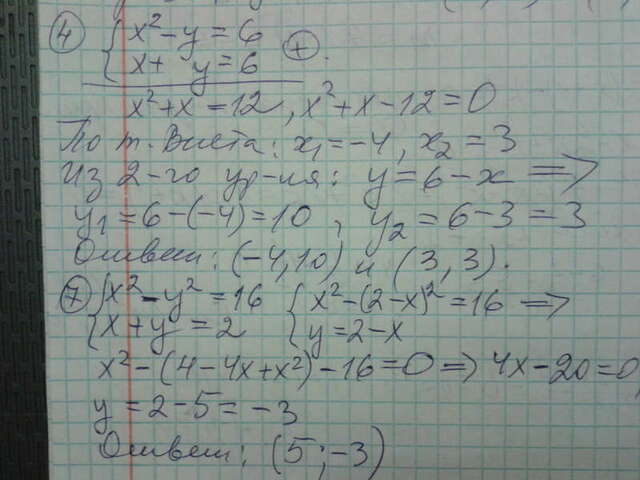 ④ { x² - y = 6
x + y = 6 ⊕.
x² + x = 12, x² + x - 12 = 0
По т. Виета: x₁ = -4, x₂ = 3
Из 2-го ур-ия: y = 6 - x ⇒
y₁ = 6 - (-4) = 10, y₂ = 6 - 3 = 3
Ответ: (-4, 10) и (3, 3).
⑦ { x² - y² = 16 { x² - (2 - x)² = 16 ⇒
x + y = 2 y = 2 - x
x² - (4 - 4x + x²) - 16 = 0 ⇒ 4x - 20 = 0
y = 2 - 5 = -3
Ответ: (5; -3)